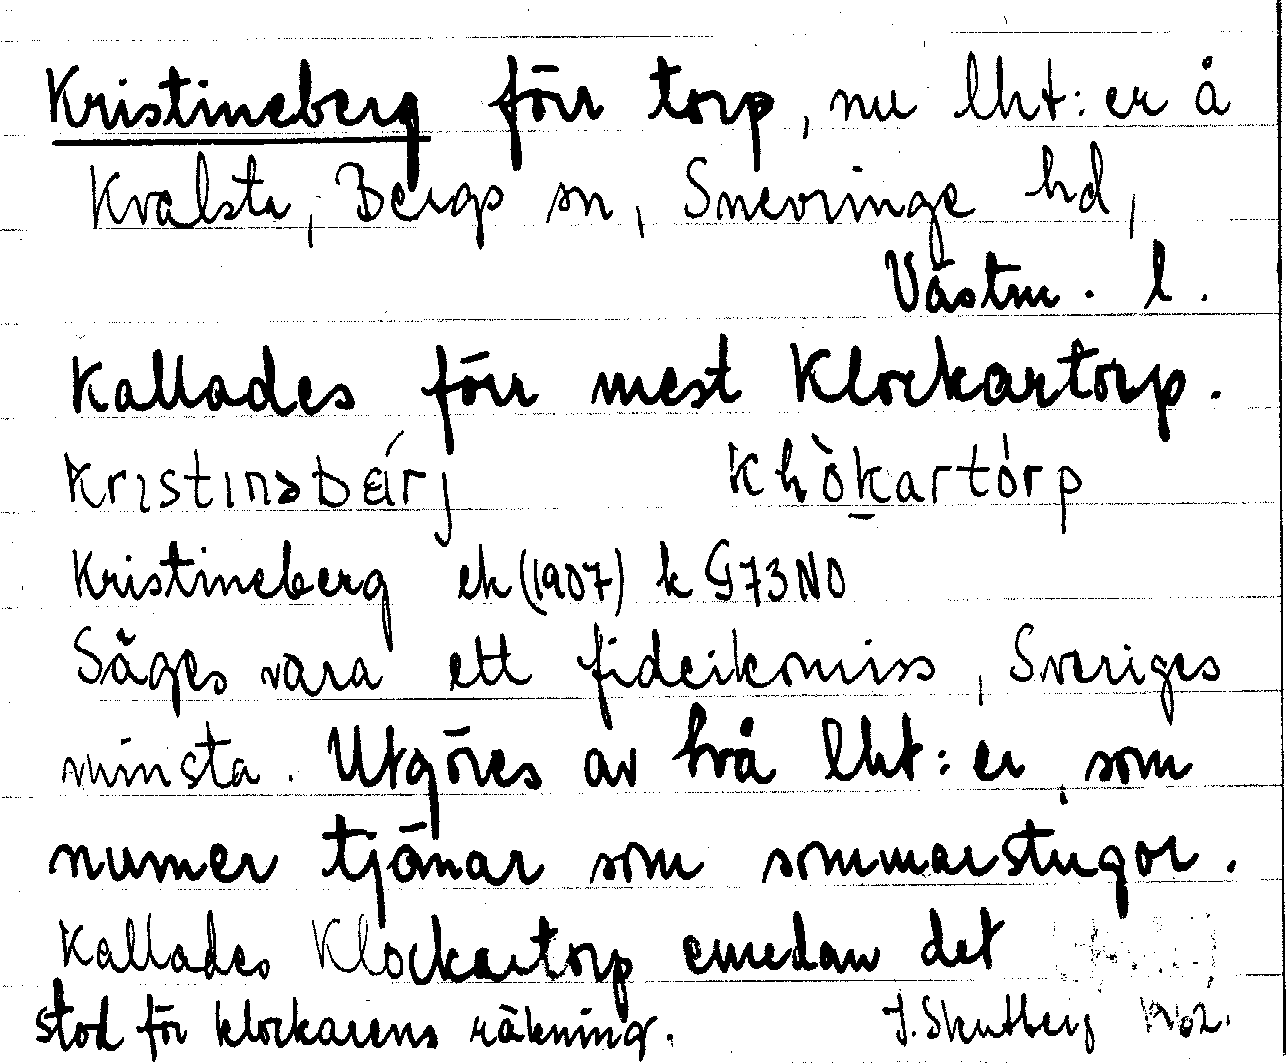 Kristineberg förr torp, nu lht:er å
Kvalsta, Bergs sn, Snevringe hd,
Västm. l.
Kallades förr mest Klockartorp.
Kristinəbärj Khòkartórp
Kristineberg ek (1907) k G73NO
Säges vara ett fideikomiss, Sveriges
minsta. Utgöres av två lht:er som
numer tjänar som sommarstugor.
Kallades Klockartorp emedan det
stod för klockarens räkning. J. Skutberg